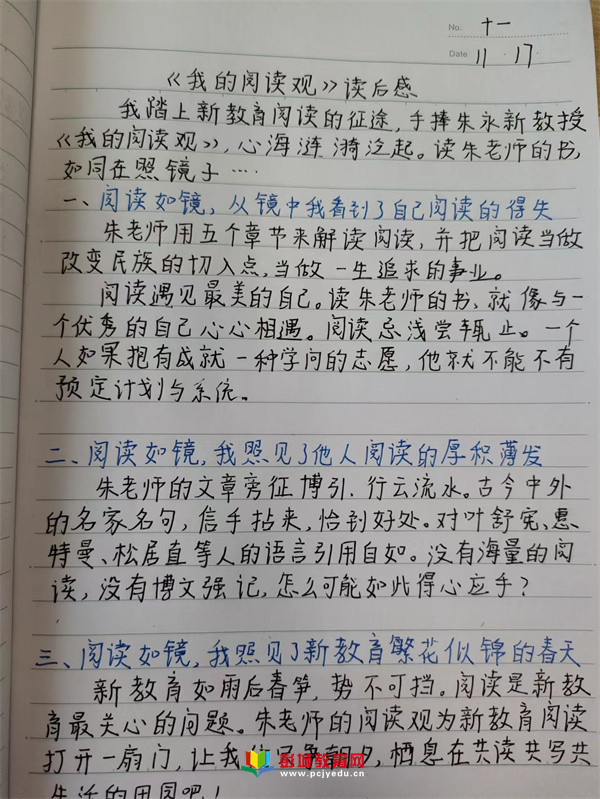 No: 十一
Date 11 . 17 .
《我的阅读观》读后感
我踏上新教育阅读的征途,手捧朱永新教授
《我的阅读观》,心海涟漪泛起。读朱老师的书,
如同在照镜子….
一、阅读如镜,从镜中我看到了自己阅读的得失
朱老师用五个章节来解读阅读,并把阅读当做
改变民族的切入点,当做一生追求的事业。
阅读遇见最美的自己。读朱老师的书,就像与一
个优秀的自己心心相遇。阅读忌浅尝辄止。一个
人如果抱有成就一种学问的志愿,他就不能不有
预定计划与系统。
二、阅读如镜,我照见了他人阅读的厚积薄发
朱老师的文章旁征博引,行云流水。古今中外
的名家名句,信手拈来,恰到好处。对叶舒宪、惠
特曼、松居直等人的语言引用自如。没有海量的阅
读,没有博文强记,怎么可能如此得心应手?
三、阅读如镜,我照见了新教育繁花似锦的春天
新教育如雨后春笋,势不可挡。阅读是新教
育最关心的问题。朱老师的阅读观为新教育阅读
打开一扇门,让我们只争朝夕,栖息在共读共写共
生活的田园吧!
彭城教育网
www.pcjyedu.cn